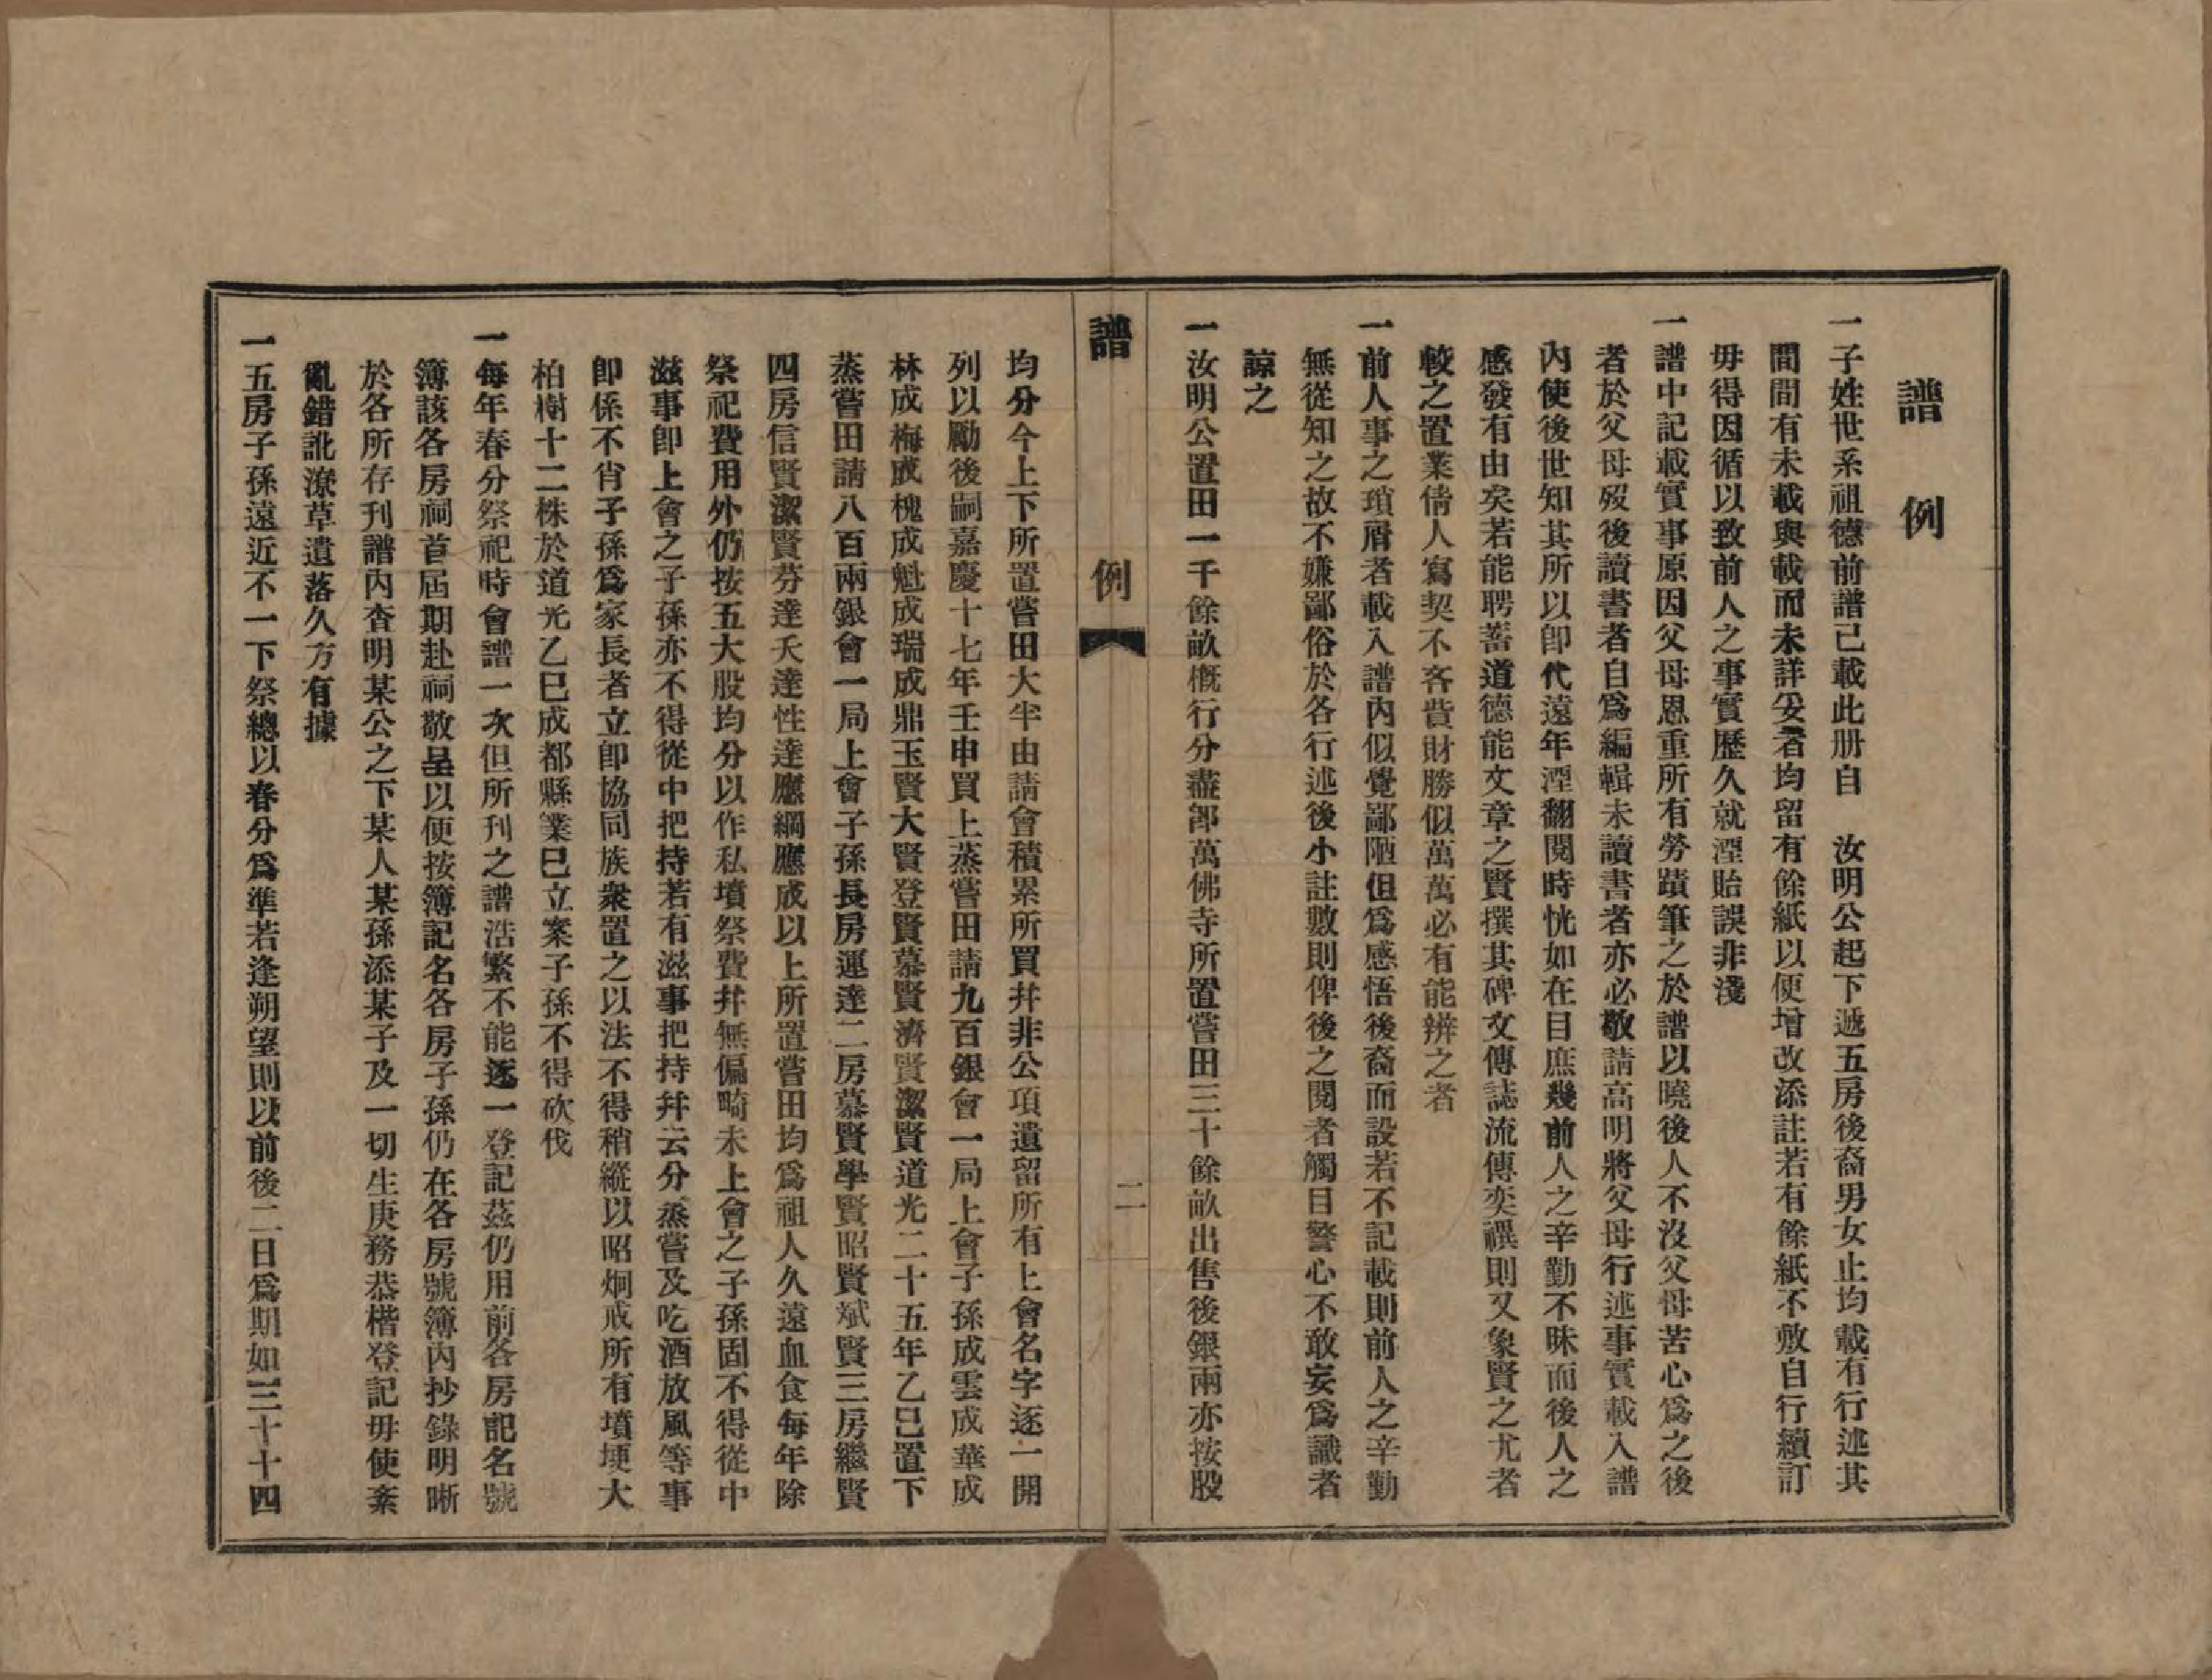 譜例
一子姓世系祖德前譜已載此册自　汝明公起下遞五房後裔男女止均載有行述其
間間有未載與載而未詳妥者均留有餘紙以便增改添註若有餘紙不敷自行續訂
毋得因循以致前人之事實歷久就湮貽誤非淺
一譜中記載實事原因父母恩重所有勞蹟筆之於譜以曉後人不沒父母苦心爲之後
者於父母歿後讀書者自爲編輯未讀書者亦必敬請高明將父母行述事實載入譜
內使後世知其所以卽代遠年湮翻閱時恍如在目庶幾前人之辛勤不昧而後人之
感發有由矣若能聘蓄道德能文章之賢撰其碑文傳誌流傳奕禩則又象賢之尤者
較之置業倩人寫契不吝貲財勝似萬萬必有能辨之者
一前人事之瑣屑者載入譜內似覺鄙陋但爲感悟後裔而設若不記載則前人之辛勤
無從知之故不嫌鄙俗於各行述後小註數則俾後之閱者觸目警心不敢妄爲識者
諒之
一汝明公置田一千餘畝槪行分盡郤萬佛寺所置嘗田三十餘畝出售後銀兩亦按股
譜例
二
均分今上下所置嘗田大半由請會積累所買幷非公項遺留所有上會名字逐一開
列以勵後嗣嘉慶十七年壬申買上蒸嘗田請九百銀會一局上會子孫成雲成華成
林成梅成槐成魁成瑞成鼎玉賢大賢登賢慕賢濟賢潔賢道光二十五年乙巳置下
蒸嘗田請八百兩銀會一局上會子孫長房運達二房慕賢學賢昭賢斌賢三房繼賢
四房信賢潔賢芬達天達性達應綱應成以上所置嘗田均爲祖人久遠血食每年除
祭祀費用外仍按五大股均分以作私墳祭費幷無偏畸未上會之子孫固不得從中
滋事卽上會之子孫亦不得從中把持若有滋事把持幷云分蒸嘗及吃酒放風等事
卽係不肖子孫爲家長者立卽協同族衆置之以法不得稍縱以昭炯戒所有墳埂大
柏樹十二株於道光乙巳成都縣業已立案子孫不得砍伐
一每年春分祭祀時會譜一次但所刊之譜浩繁不能逐一登記茲仍用前各房記名號
簿該各房祠首屆期赴祠敬呈以便按簿記名各房子孫仍在各房號簿內抄錄明晰
於各所存刊譜內查明某公之下某人某孫添某子及一切生庚務恭楷登記毋使紊
亂錯訛潦草遺落久方有據
一五房子孫遠近不一下祭總以春分爲準若逢朔望則以前後二日爲期如三十十四